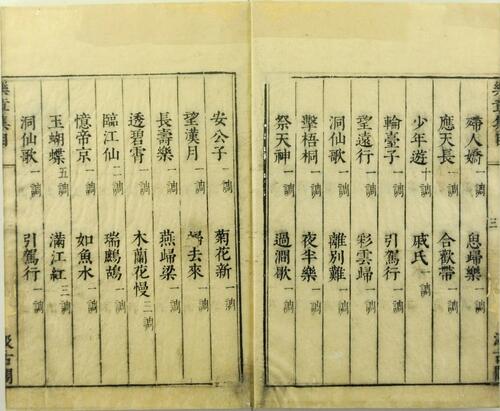 殢人嬌 一調 思歸樂 一調
應天長 一調 合歡帶 一調
少年遊 十調 戚氏 一調
輪臺子 一調 引駕行 一調
望遠行 一調 彩雲歸 一調
洞仙歌 一調 離別難 一調
擊梧桐 一調 夜半樂 一調
祭天神 一調 過澗歇 一調
安公子 一調 菊花新 一調
望漢月 一調 歸去來 一調
長壽樂 一調 燕歸梁 一調
透碧霄 一調 木蘭花慢 三調
臨江仙 二調 瑞鷓鴣 一調
憶帝京 一調 如魚水 一調
玉蝴蝶 五調 滿江紅 三調
洞仙歌 一調 引駕行 一調
樂章集目 汲古閣